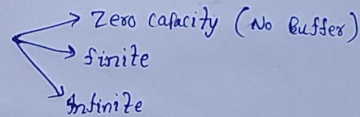 Zero capacity (No Buffer)
finite
Infinite